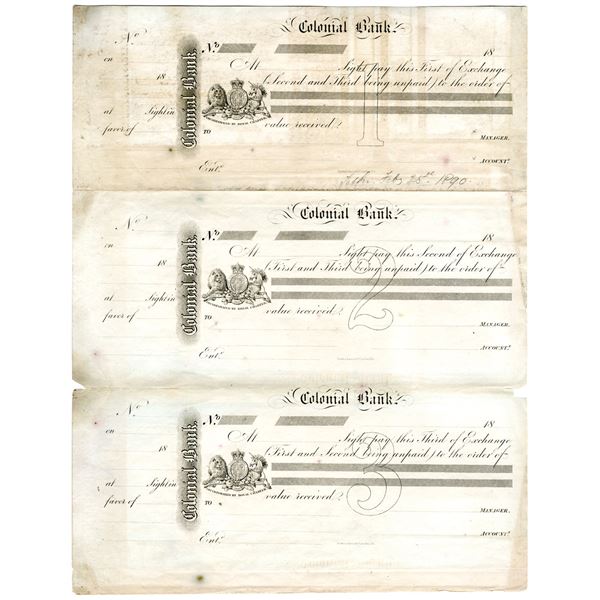 Colonial Bank.
No. 18
No.
on At Sight pay this First of Exchange
18 (Second and Third being unpaid) to the order of
Colonial Bank.
1
at Sight in
INCORPORATED BY ROYAL CHARTER
favor of TO value received.
MANAGER.
ACCOUNT.t
Ent.d
Feb 25th 1890
Colonial Bank.
No. 18
No.
on At Sight pay this Second of Exchange
18 (First and Third being unpaid) to the order of
Colonial Bank.
2
at Sight in
INCORPORATED BY ROYAL CHARTER
favor of TO value received.
MANAGER.
ACCOUNT.t
Ent.d
Colonial Bank.
No. 18
No.
on At Sight pay this Third of Exchange
18 (First and Second being unpaid) to the order of
Colonial Bank.
3
at Sight in
INCORPORATED BY ROYAL CHARTER
favor of TO value received.
MANAGER.
ACCOUNT.t
Ent.d